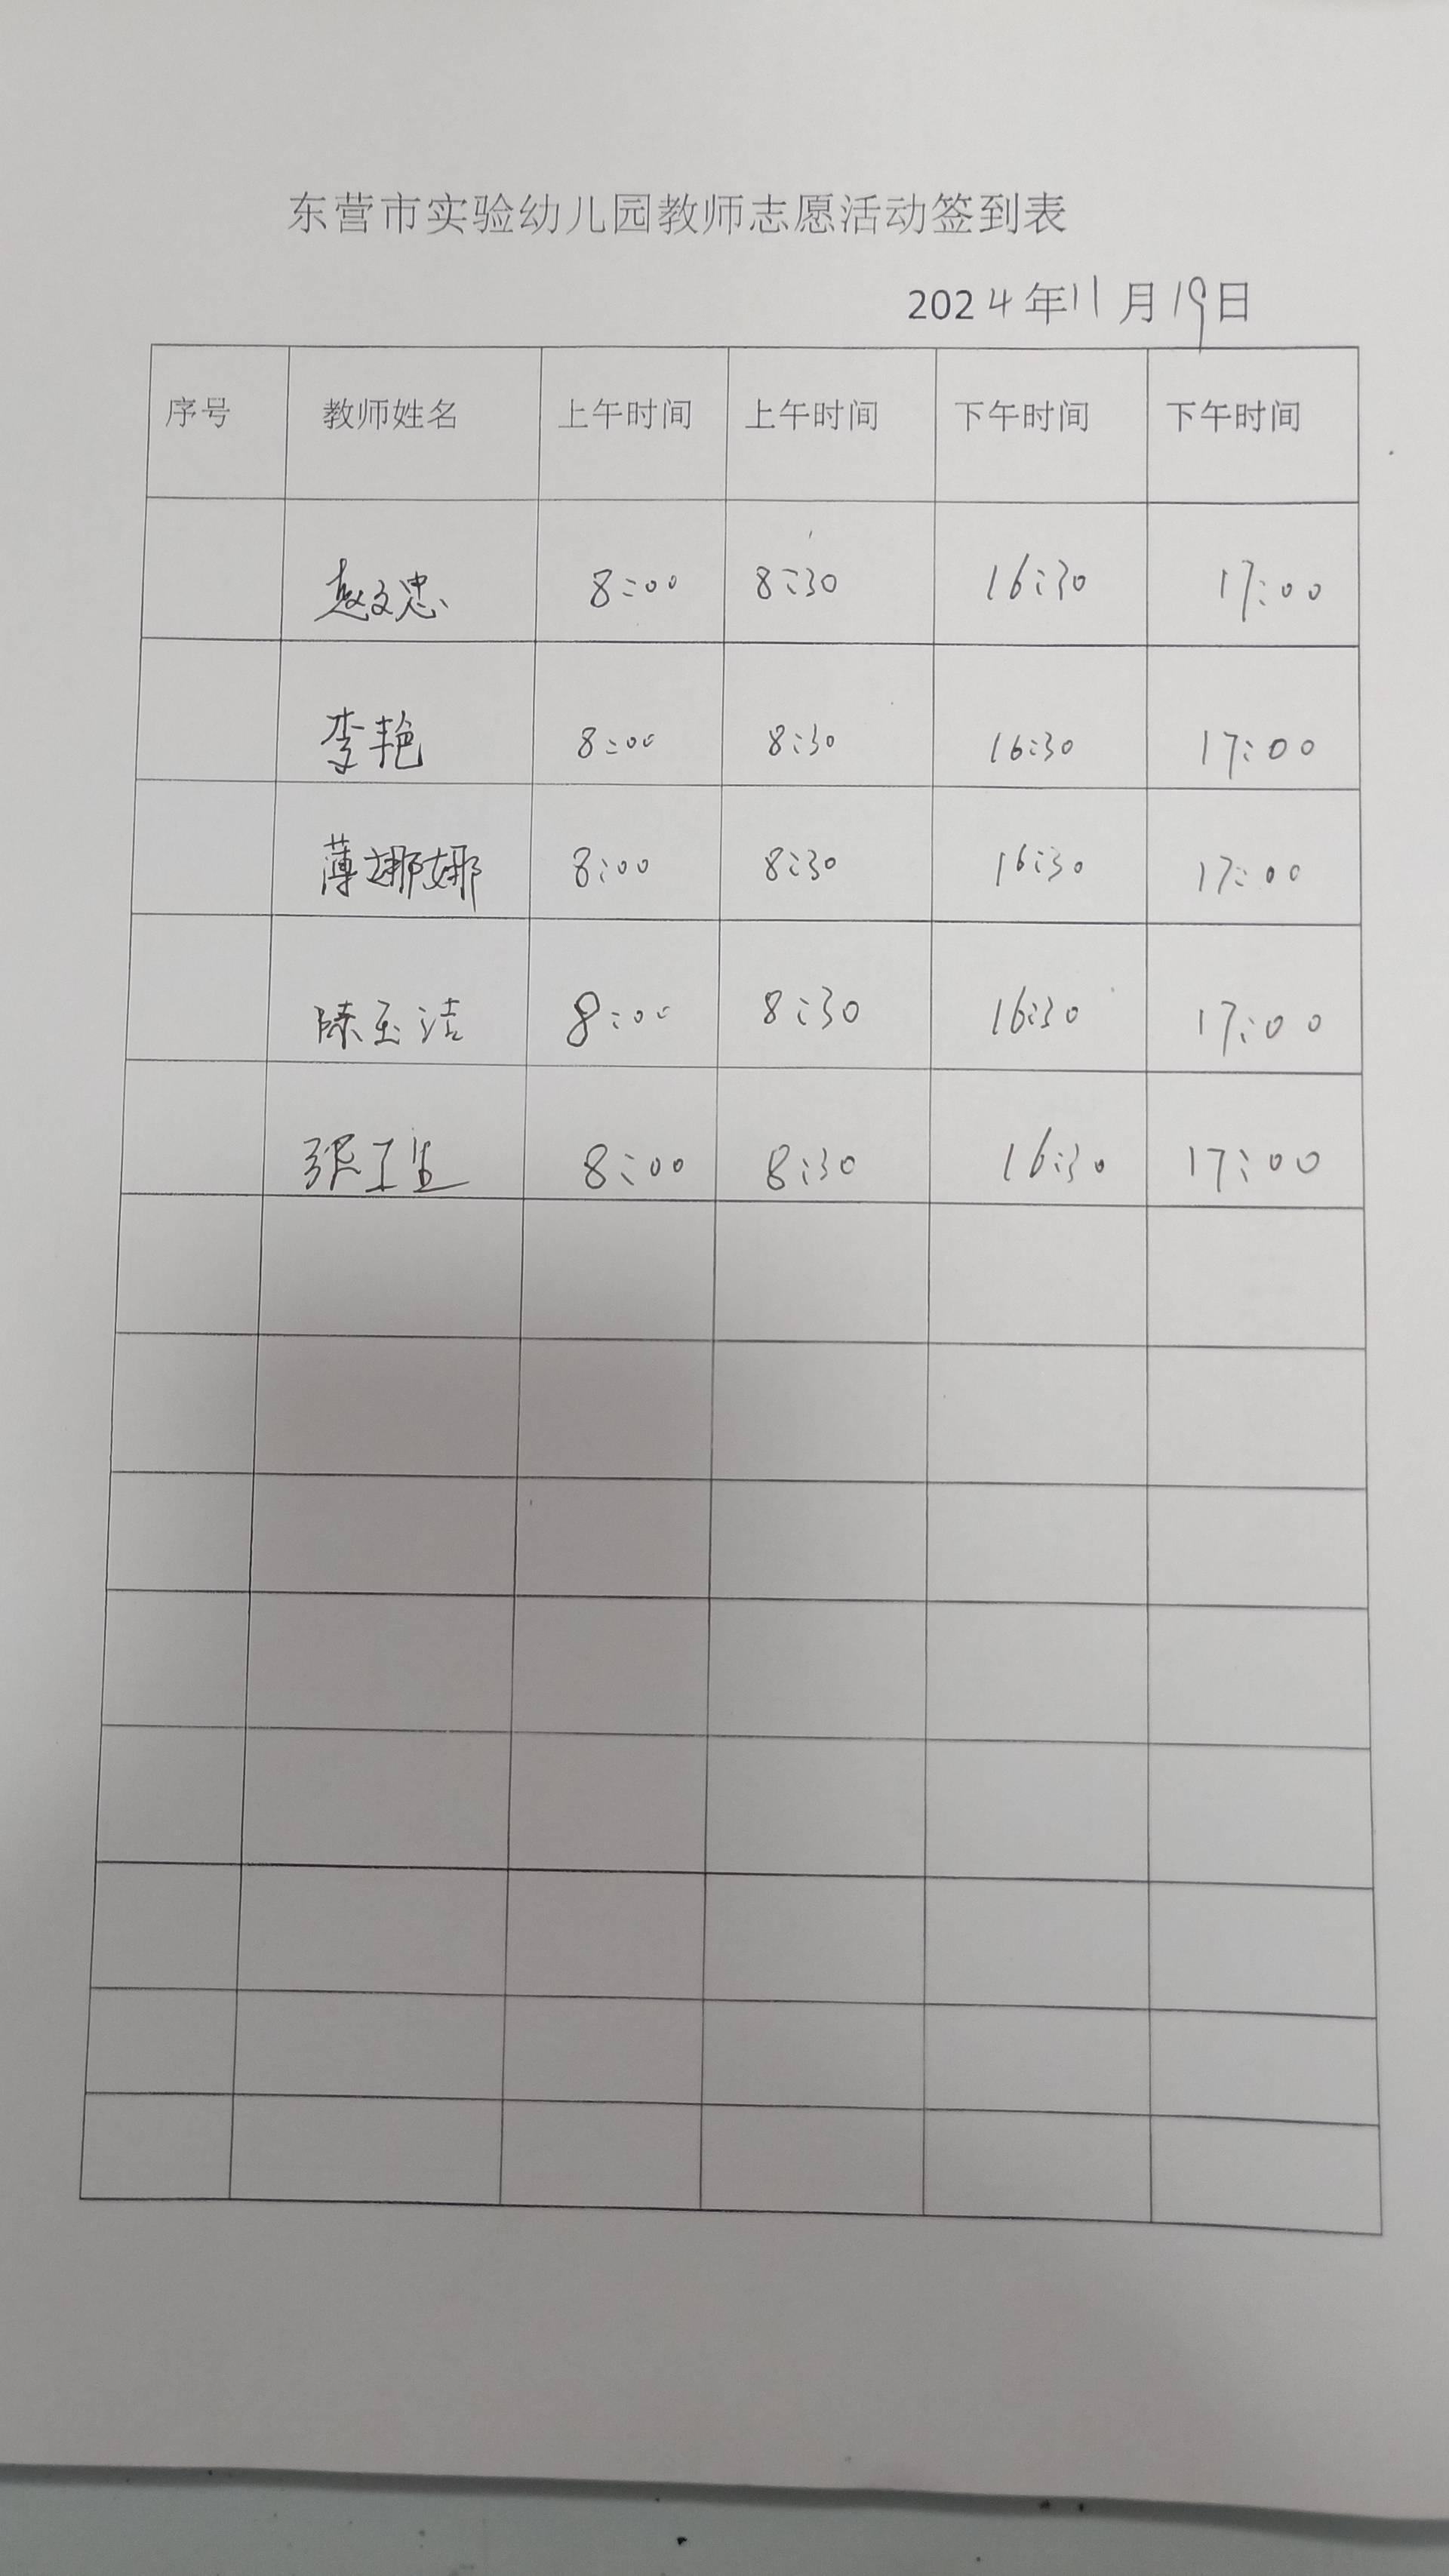 东营市实验幼儿园教师志愿活动签到表
2024年11月19日
序号 教师姓名 上午时间 上午时间 下午时间 下午时间
赵文忠 8:00 8:30 16:30 17:00
李艳 8:00 8:30 16:30 17:00
薄娜娜 8:00 8:30 16:30 17:00
陈玉洁 8:00 8:30 16:30 17:00
张 8:00 8:30 16:30 17:00